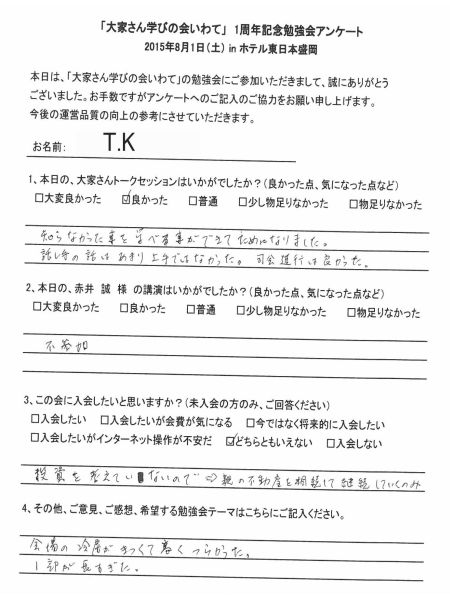 「大家さん学びの会いわて」 1周年記念勉強会アンケート
2015年8月1日(土) in ホテル東日本盛岡
本日は、「大家さん学びの会いわて」の勉強会にご参加いただきまして、誠にありがとう
ございました。お手数ですがアンケートへのご記入のご協力をお願い申し上げます。
今後の運営品質の向上の参考にさせていただきます。
お名前: T.K
1、本日の、大家さんトークセッションはいかがでしたか?(良かった点、気になった点など)
□大変良かった ☑良かった □普通 □少し物足りなかった □物足りなかった
知らなかった事を学べる事ができてためになりました。
話し手の話はあまり上手ではなかった。司会進行は良かった。
2、本日の、赤井 誠 様 の講演はいかがでしたか?(良かった点、気になった点など)
□大変良かった □良かった □普通 □少し物足りなかった □物足りなかった
不参加
3、この会に入会したいと思いますか?(未入会の方のみ、ご回答ください)
□入会したい □入会したいが会費が気になる □今ではなく将来的に入会したい
□入会したいがインターネット操作が不安だ ☑どちらともいえない □入会しない
投資を考えていないので ⇒親の不動産を相続して継続していくのみ
4、その他、ご意見、ご感想、希望する勉強会テーマはこちらにご記入ください。
会場の冷房がきつくて寒くつらかった。
1部が長すぎた。